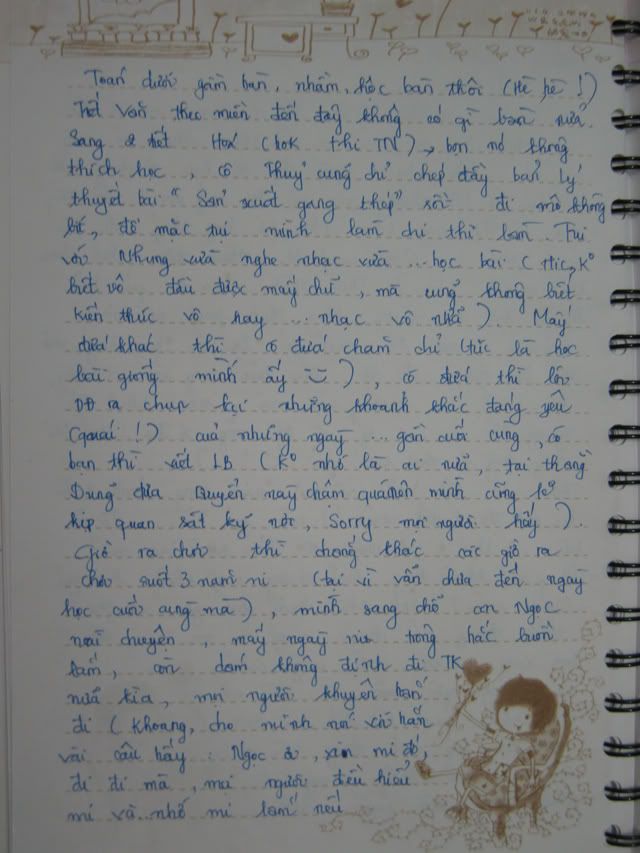 Toán dưới gầm bàn, nhầm, học bàn thôi (Hè hè !)
Tiết Văn theo miền đến đây không có gì bàn nữa.
Sang 2 tiết Hoá (hok thi TN) → bọn nó không
thích học, cô Thuỷ cũng chỉ chép đầy bản lý
thuyết bài "Sản xuất gang thép" rồi đi mô không
bt, để mặc tụi mình làm chi thì làm. Tui
với Nhung vừa nghe nhạc vừa ... học bài (Hic, K°
biết vô đầu được mấy chữ, mà cũng không biết
kiến thức vô hay ... nhạc vô nữa). Mấy
đứa khác thì có đứa chăm chỉ (tức là học
bài giống mình ấy), có đứa thì lôi
DĐ ra chụp lại những khoảnh khắc đáng yêu
(quái !) của những ngày ... gần cuối cùng, có
bạn thì viết LB (K° nhớ là ai nữa, tại thằng
Dũng đưa quyển này chậm quá nên mình cũng k°
kịp quan sát kỹ nơi, Sorry mọi người hấy).
Giờ ra chơi thì chẳng khác các giờ ra
chơi suốt 3 năm ni (tại vì vẫn chưa đến ngày
học cuối cùng mà), mình sang chỗ Ngọc
nói chuyện, mấy ngày ni trông hắc buồn
lắm, còn không định đi TK
nữa tề, mọi người khuyên hắn
đi (khoang, cho mình nói với hắn
vài câu hấy : Ngọc ơ, xin mi đó,
đi đi mà, mọi người đều hiểu
mi và nhớ mi lắm nếu